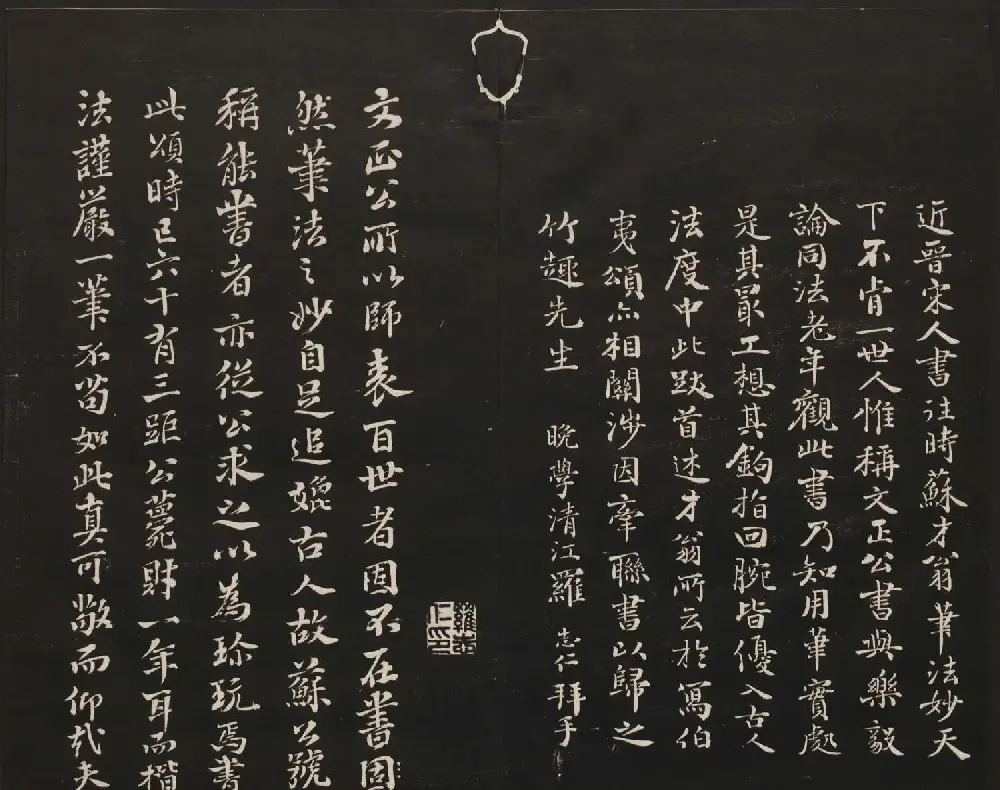 近晉宋人書往時蘇才翁筆法妙天
下不肯一世人惟稱文正公書與樂毅
論同法老年觀此書乃知用筆實處
是其最工想其鉤指回腕皆優入古人
法度中此跋首述才翁所云於寫伯
夷頌尒相關涉因牽聯書以歸之
竹趣先生 晚學清江羅 志仁拜手
文正公所以師表百世者固不在書固
然筆法之妙自足追媲古人故蘇公號
稱能書者亦從公求之以為珍玩焉書
此頌時已六十有三距公薨財一年耳而楷
法謹嚴一筆不苟如此真可敬而仰哉夫